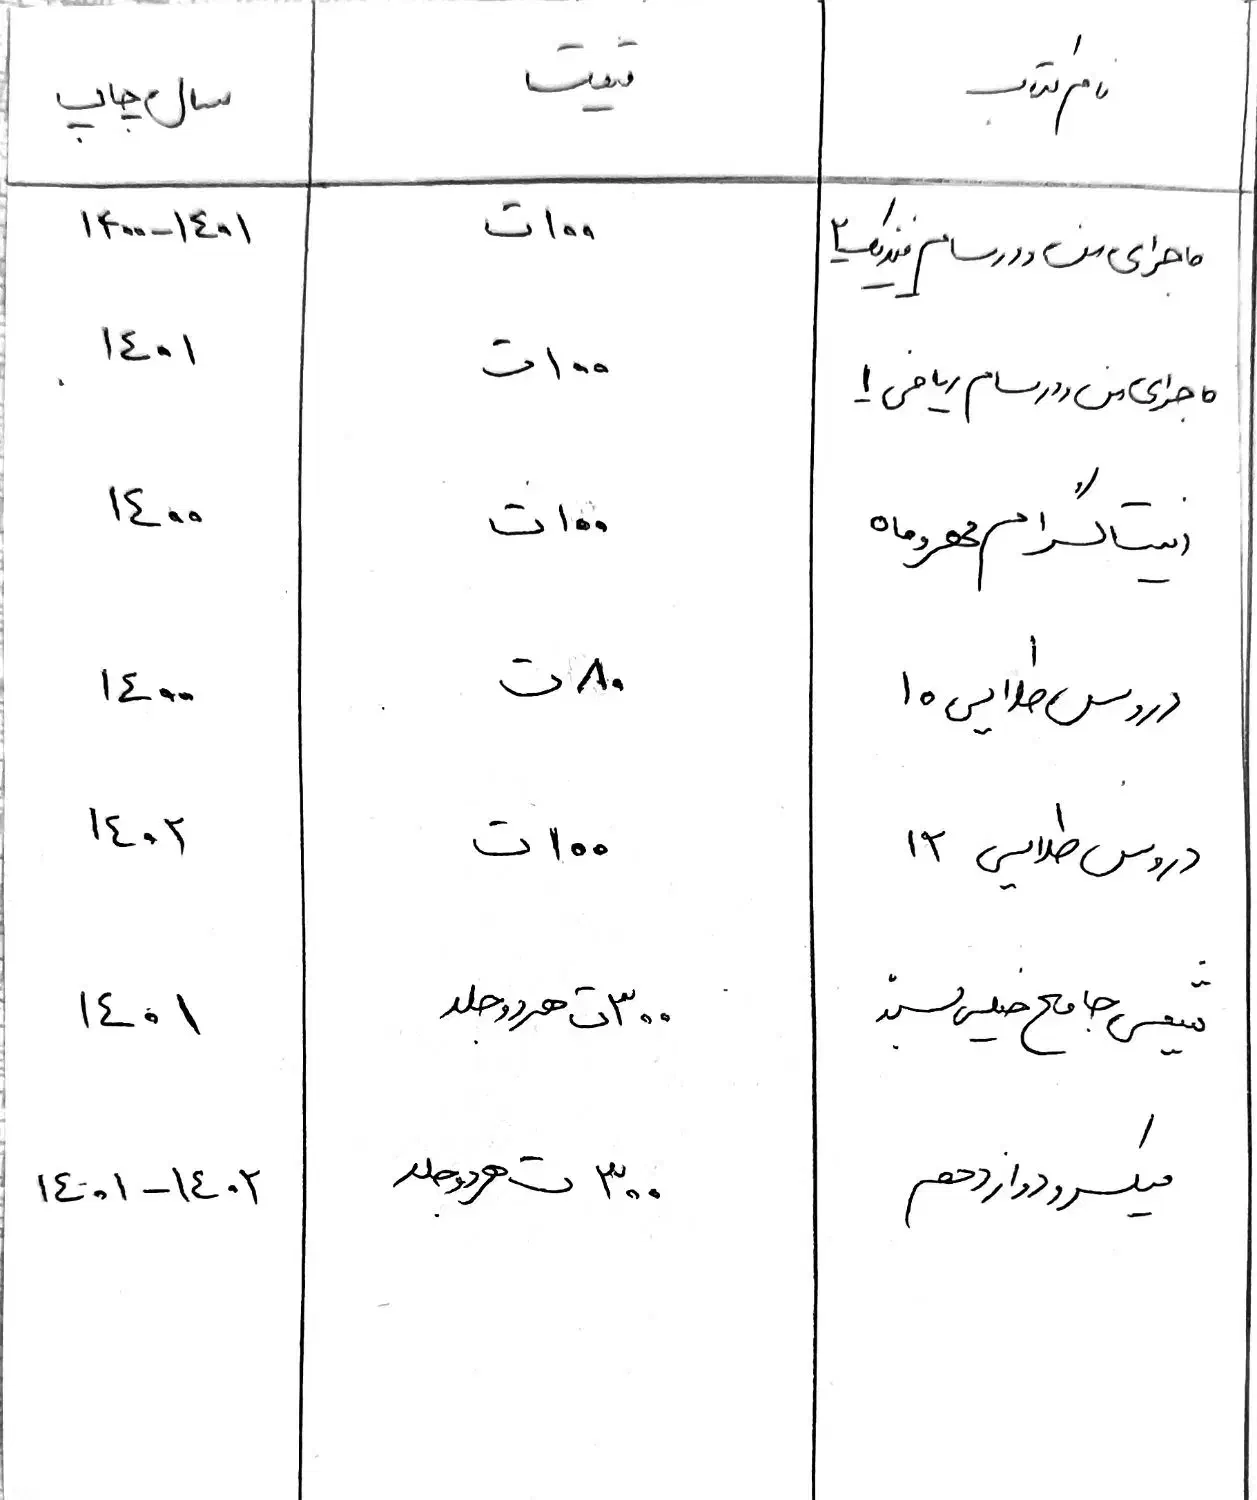 نام کتاب قیمت سال چاپ
ماجرای من و درسام فیزیک ۲ ۱۰۰ت ۱۴۰۰-۱۴۰۱
ماجرای من و درسام ریاضی ۱ ۱۰۰ت ۱۴۰۱
اینستاگرام مهروماه ۱۰۰ت ۱۴۰۰
دروس طلایی ۱۰ ۸۰ت ۱۴۰۰
دروس طلایی ۱۲ ۱۰۰ت ۱۴۰۲
شیمی جامع خیلی سبز ۳۰۰ت هر دو جلد ۱۴۰۱
میکرو دوازدهم ۳۰۰ت هر دو جلد ۱۴۰۱-۱۴۰۲